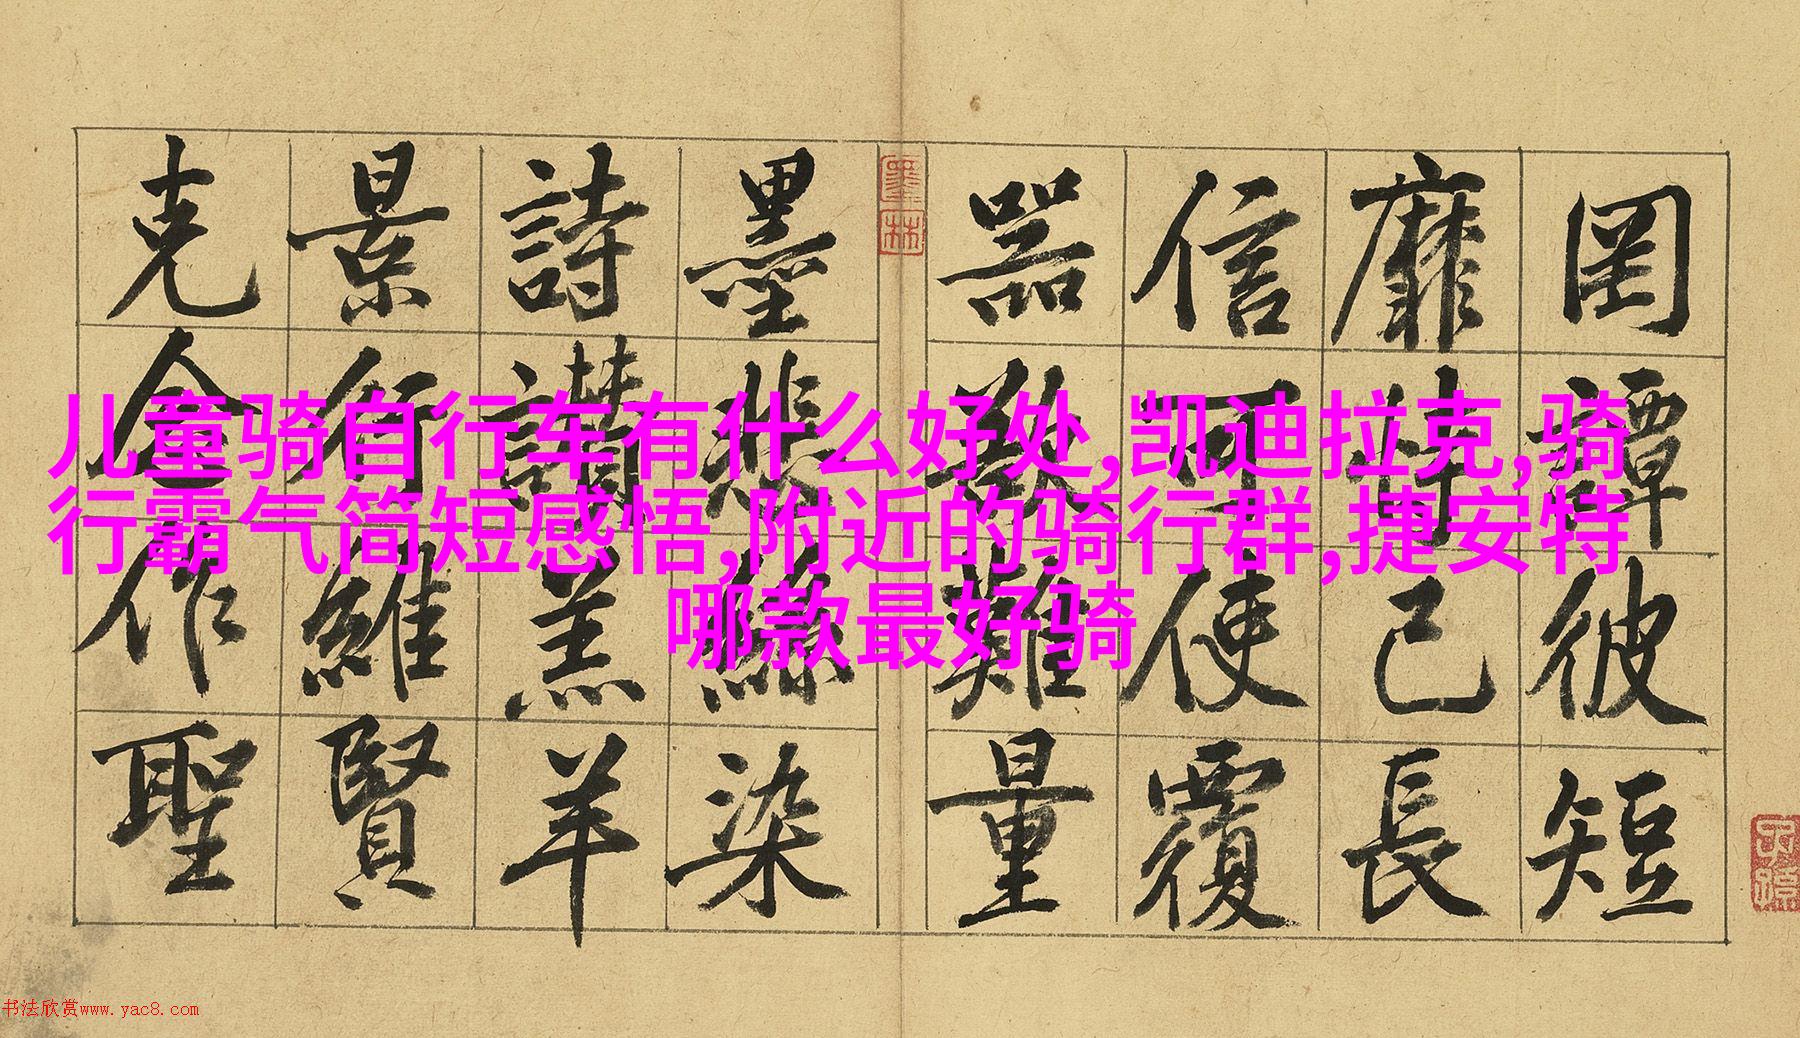 儿童骑自行车有什么好处,凯迪拉克,骑
行霸气简短感悟,附近的骑行群,捷安特
哪款最好骑
罔譚彼短
靡恃己長
信可使覆
器欲難量
墨悲絲染
詩讚羔羊
景行維賢
克念作聖
墨林
书法欣赏www.yac8.com